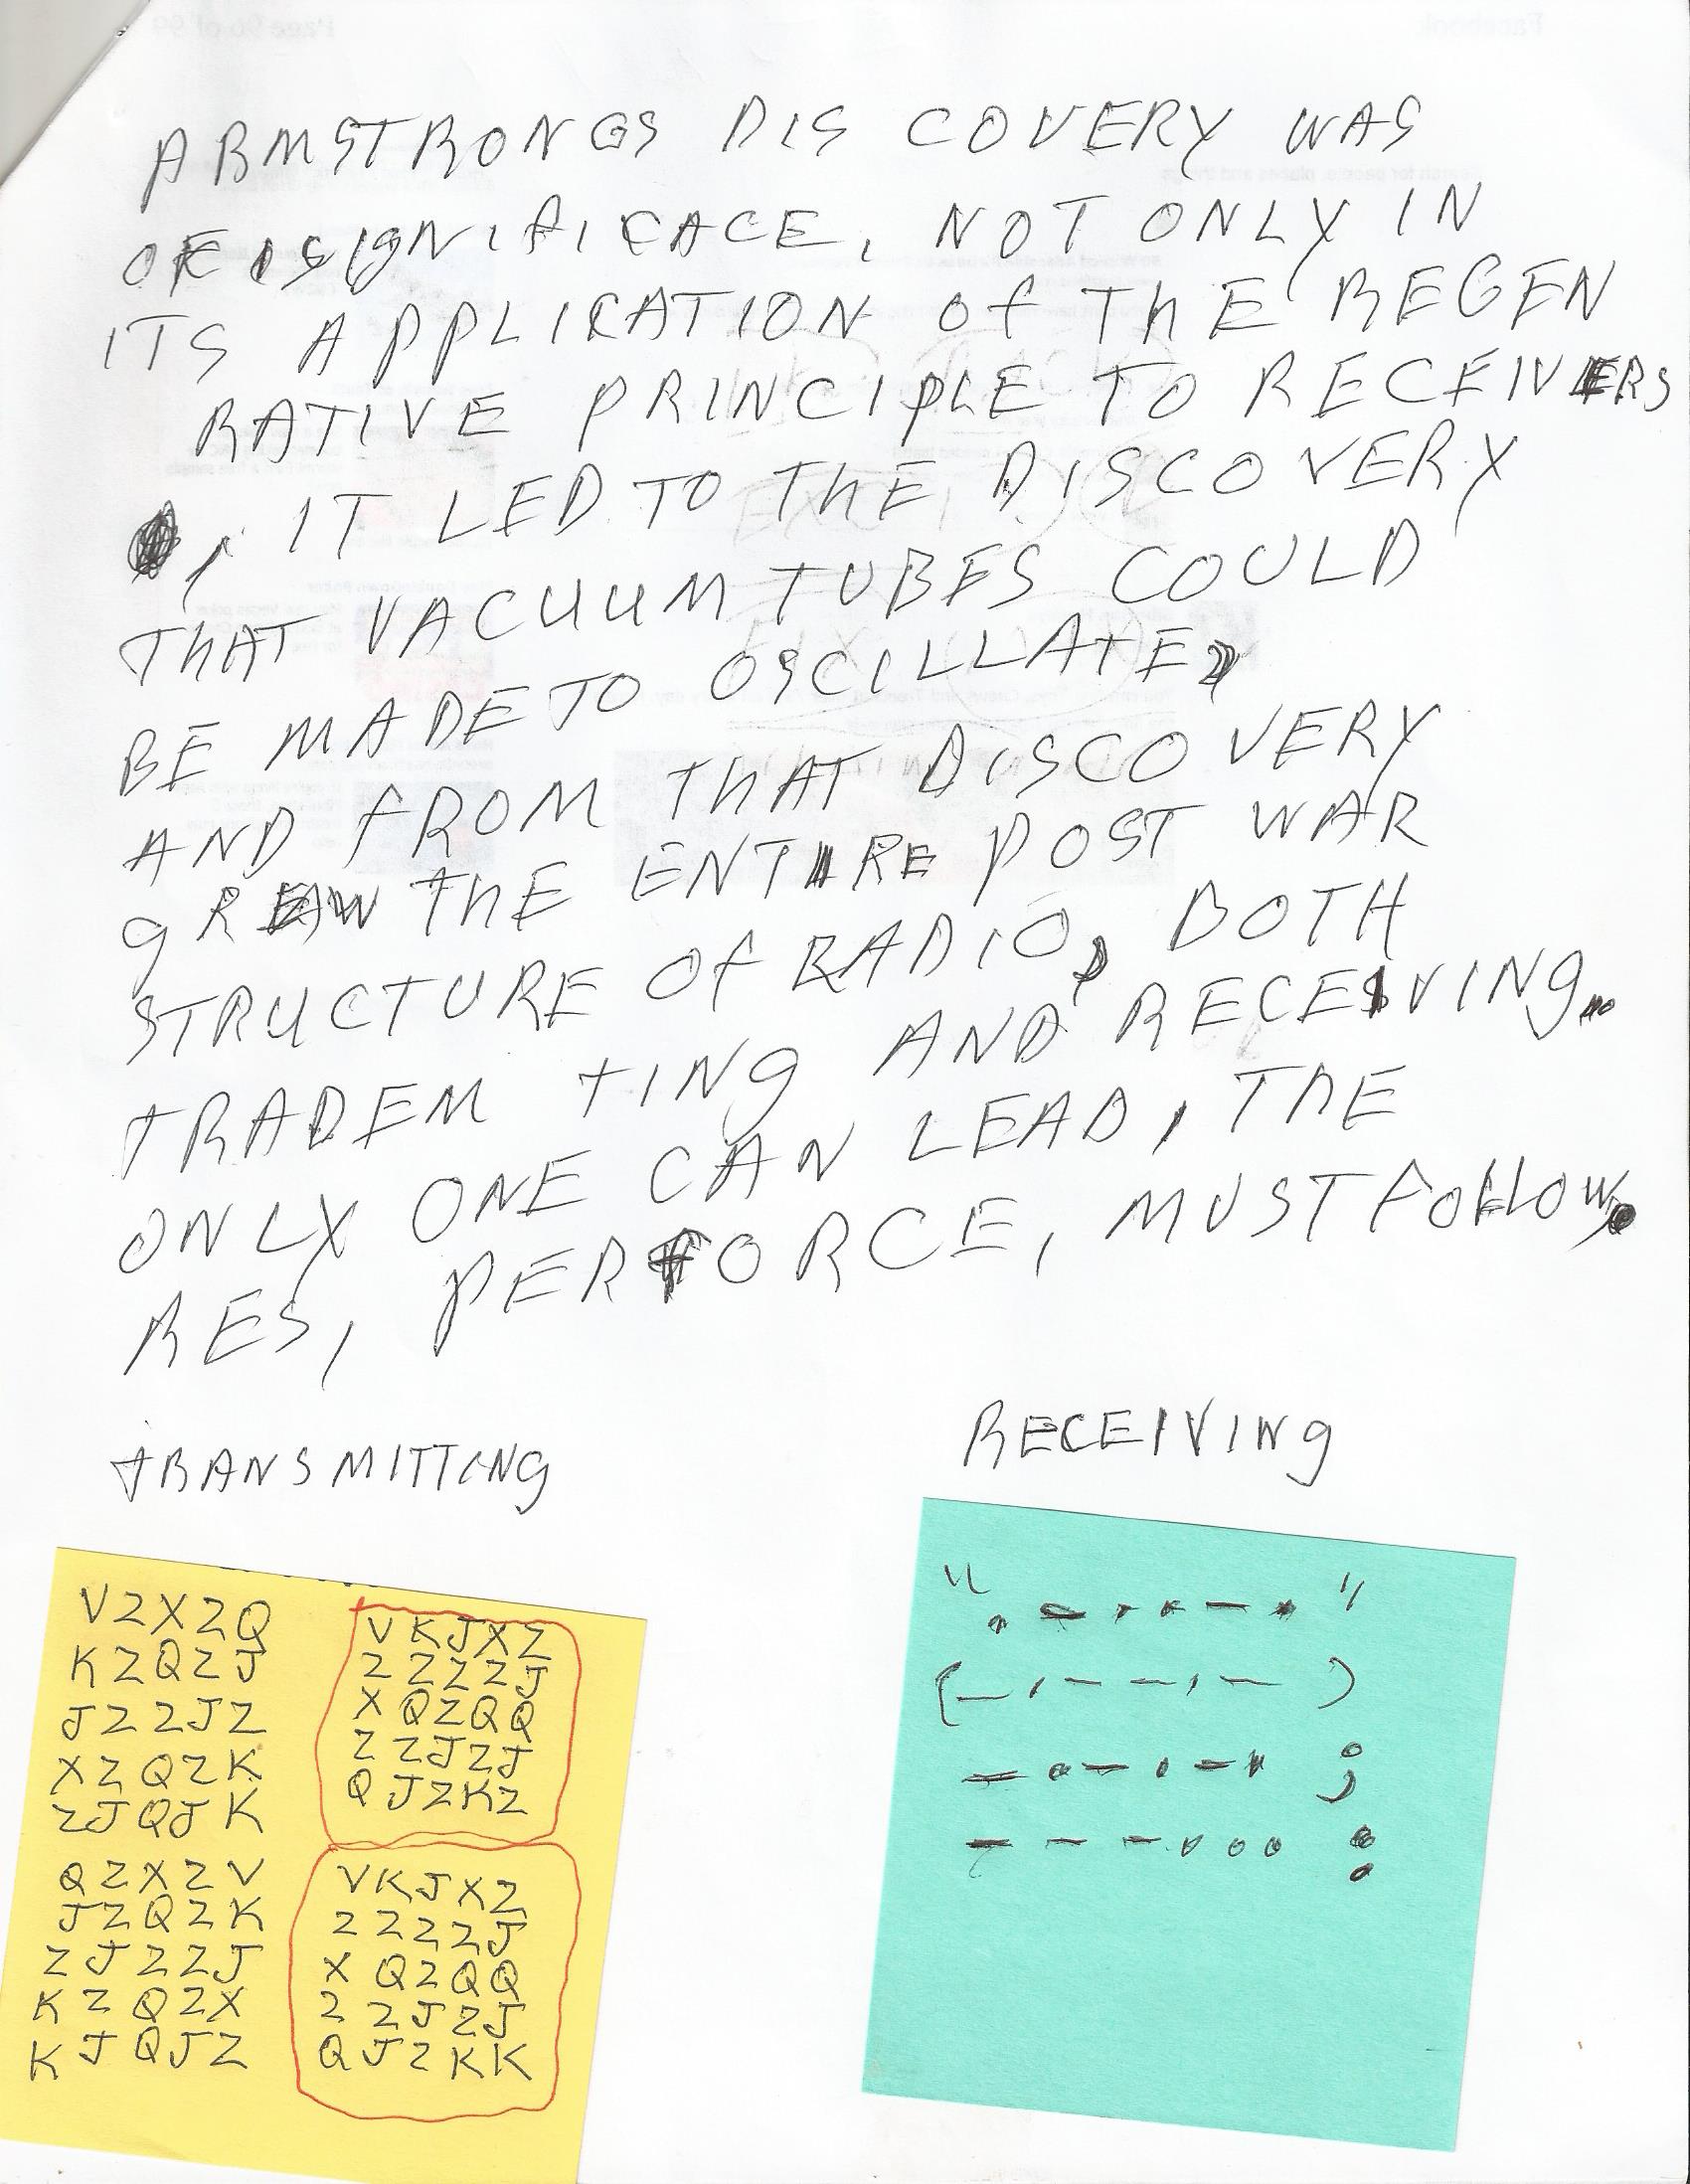 ARMSTRONGS DIS COVERY WAS
OF SIGNIFICACE, NOT ONLY IN
ITS APPLICATION Of ThE REGEN
RATIVE PRINCIPLE TO RECEIVERS
, IT LED TO ThE DISCOVERY
ThAT VACUUM TUBES COULD
BE MADE TO OSCILLATE,
AND fROM ThAT DISCOVERY
gREW ThE ENTIRE POST WAR
STRUCTURE Of RADIO, BOTH
TRADEM TING AND RECEIVING.
ONLY ONE CAN LEAD, ThE
RES, PERFORCE, MUST FOLLOW.
TRANSMITTING
RECEIVING
VZXZQ
KZQZJ
JZZJZ
XZQZK
ZJQJK
QZXZV
JZQZK
ZJZZJ
KZQZX
KJQJZ
VKJXZ
ZZZZJ
XQZQQ
ZZJZJ
QJZKZ
VKJXZ
ZZZZJ
XQZQQ
ZZJZJ
QJZKK
" . - . . - . "
( - . - - . - )
- . - . - . ;
- - - . . . :